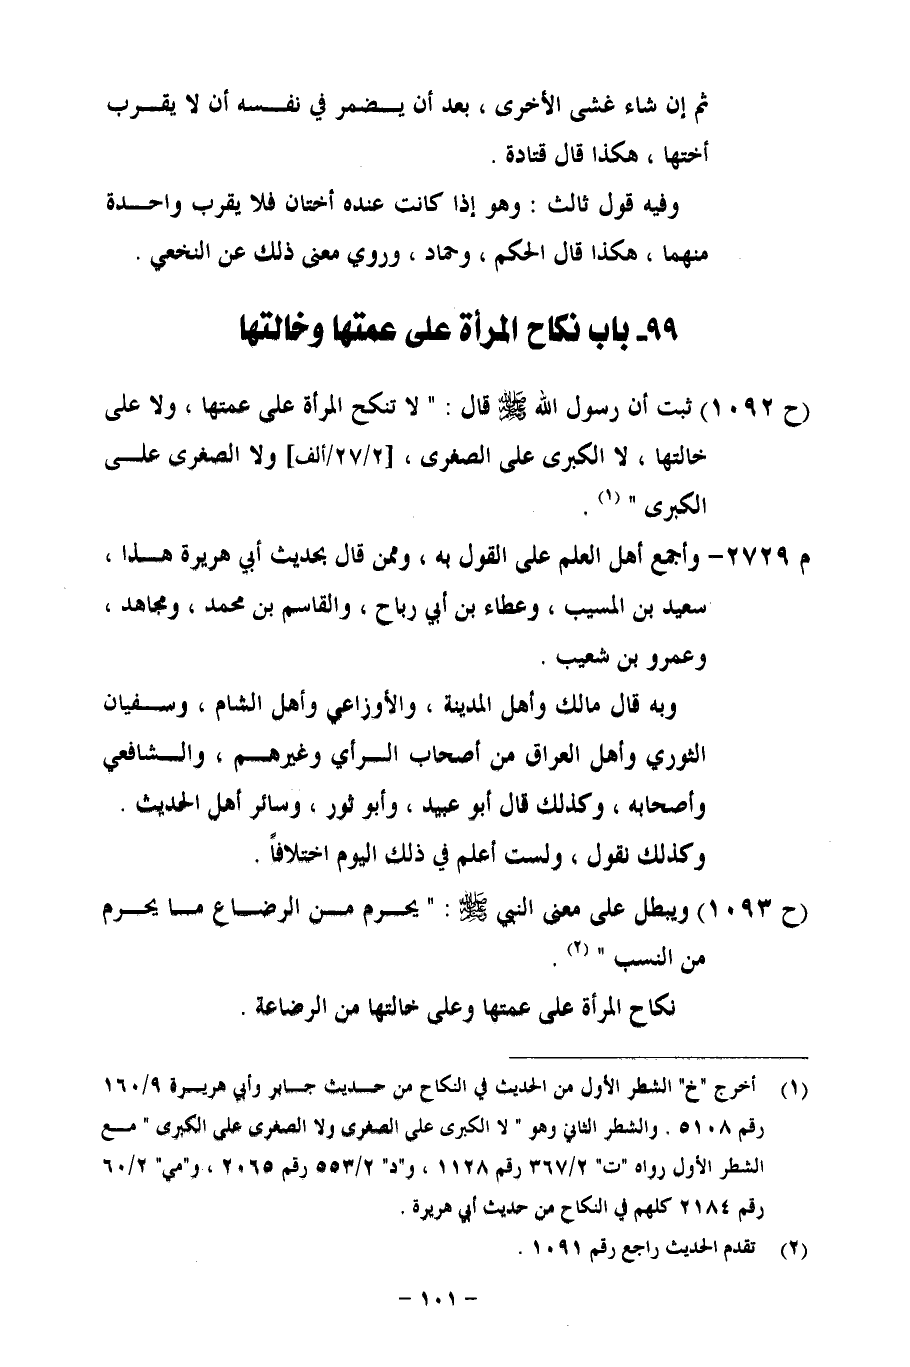 ثم إن شاء غشى الأخرى ، بعد أن يضمر في نفسه أن لا يقرب
أختها ، هكذا قال قتادة .
وفيه قول ثالث : وهو إذا كانت عنده أختان فلا يقرب واحدة
منهما ، هكذا قال الحكم ، وحماد ، وروي معنى ذلك عن النخعي .
٩٩ـ باب نكاح المرأة على عمتها وخالتها
(ح ١٠٩٢) ثبت أن رسول الله ﷺ قال : " لا تنكح المرأة على عمتها ، ولا على
خالتها ، لا الكبرى على الصغرى ، [٢٧/٢/ألف] ولا الصغرى على
الكبرى " (١) .
م ٢٧٢٩– وأجمع أهل العلم على القول به ، وممن قال بحديث أبي هريرة هذا ،
سعيد بن المسيب ، وعطاء بن أبي رباح ، والقاسم بن محمد ، ومجاهد ،
وعمرو بن شعيب .
وبه قال مالك وأهل المدينة ، والأوزاعي وأهل الشام ، وسفيان
الثوري وأهل العراق من أصحاب الرأي وغيرهم ، والشافعي
وأصحابه ، وكذلك قال أبو عبيد ، وأبو ثور ، وسائر أهل الحديث .
وكذلك نقول ، ولست أعلم في ذلك اليوم اختلافاً .
(ح ١٠٩٣) ويبطل على معنى النبي ﷺ : " يحرم من الرضاع ما يحرم
من النسب " (٢) .
نكاح المرأة على عمتها وعلى خالتها من الرضاعة .
(١) أخرج "خ" الشطر الأول من الحديث في النكاح من حديث جابر وأبي هريرة ١٦٠/٩
رقم ٥١٠٨ . والشطر الثاني وهو " لا الكبرى على الصغرى ولا الصغرى على الكبرى " مع
الشطر الأول رواه "ت" ٣٦٧/٢ رقم ١١٢٨ ، و"د" ٥٥٣/٢ رقم ٢٠٦٥ ، و"مي" ٦٠/٢
رقم ٢١٨٤ كلهم في النكاح من حديث أبي هريرة .
(٢) تقدم الحديث راجع رقم ١٠٩١ .
– ١٠١ –